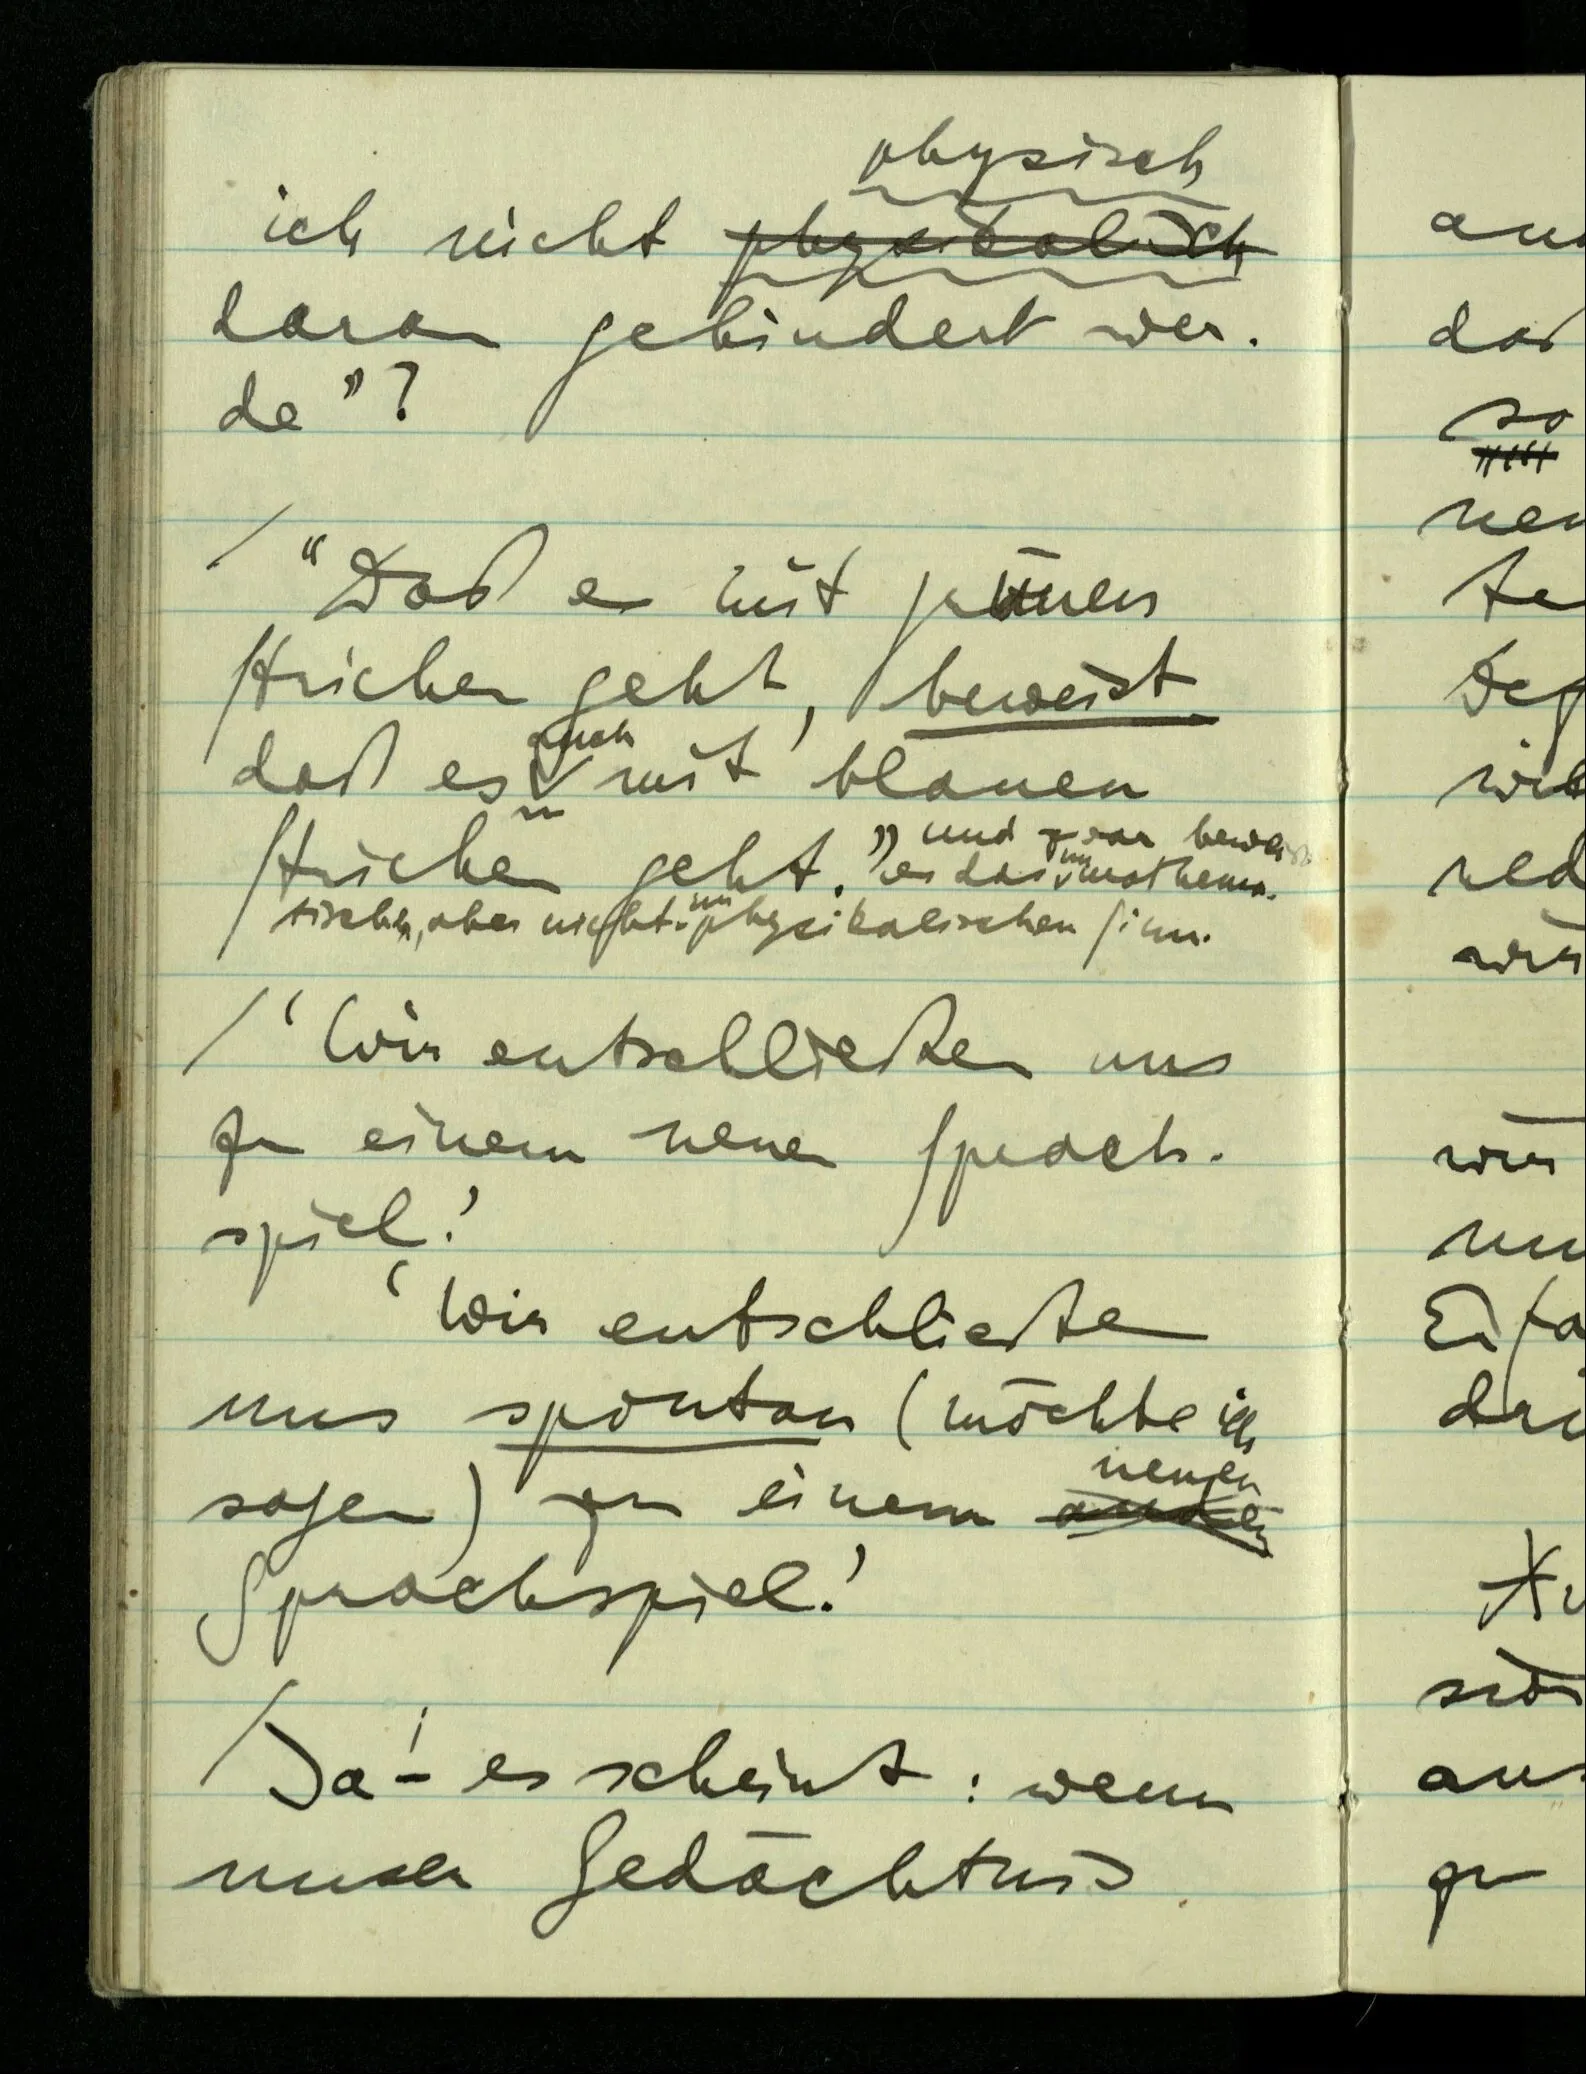 physisch
ich nicht physikalisch
daran gehindert wer-
de"?
/ "Daß es mit grünen
Strichen geht, beweist
daß es auch mit blauen
Strichen geht." und zwar beweist
es das im mathema-
tischen, aber nicht im physikalischen Sinn.
/ ‘Wir entschließen uns
zu einem neuen Sprach-
spiel.’
‘Wir entschließen
uns spontan (möchte ich
sagen) zu einem neuen
Sprachspiel.’
/ Ja! – es scheint: wenn
unser Gedächtnis
daß
so
wir
wir
zu